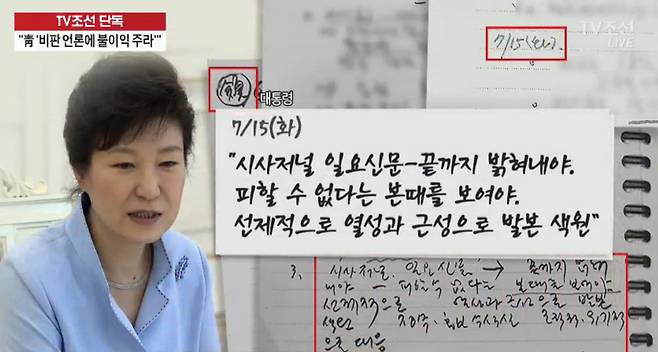 TV조선 단독
"靑 '비판 언론에 불이익 주라'"
TV조선
LIVE
7/15(화).
대통령
7/15(화)
"시사저널 일요신문-끝까지 밝혀내야.
피할 수 없다는 본때를 보여야.
선제적으로 열성과 근성으로 발본 색원"
3. 시사저널, 일요신문 → 끝까지 밝혀
내야 - 피할수 없다는 본때를 보여야
선제적으로 열성과 근성으로 발본
색원
으로 대응